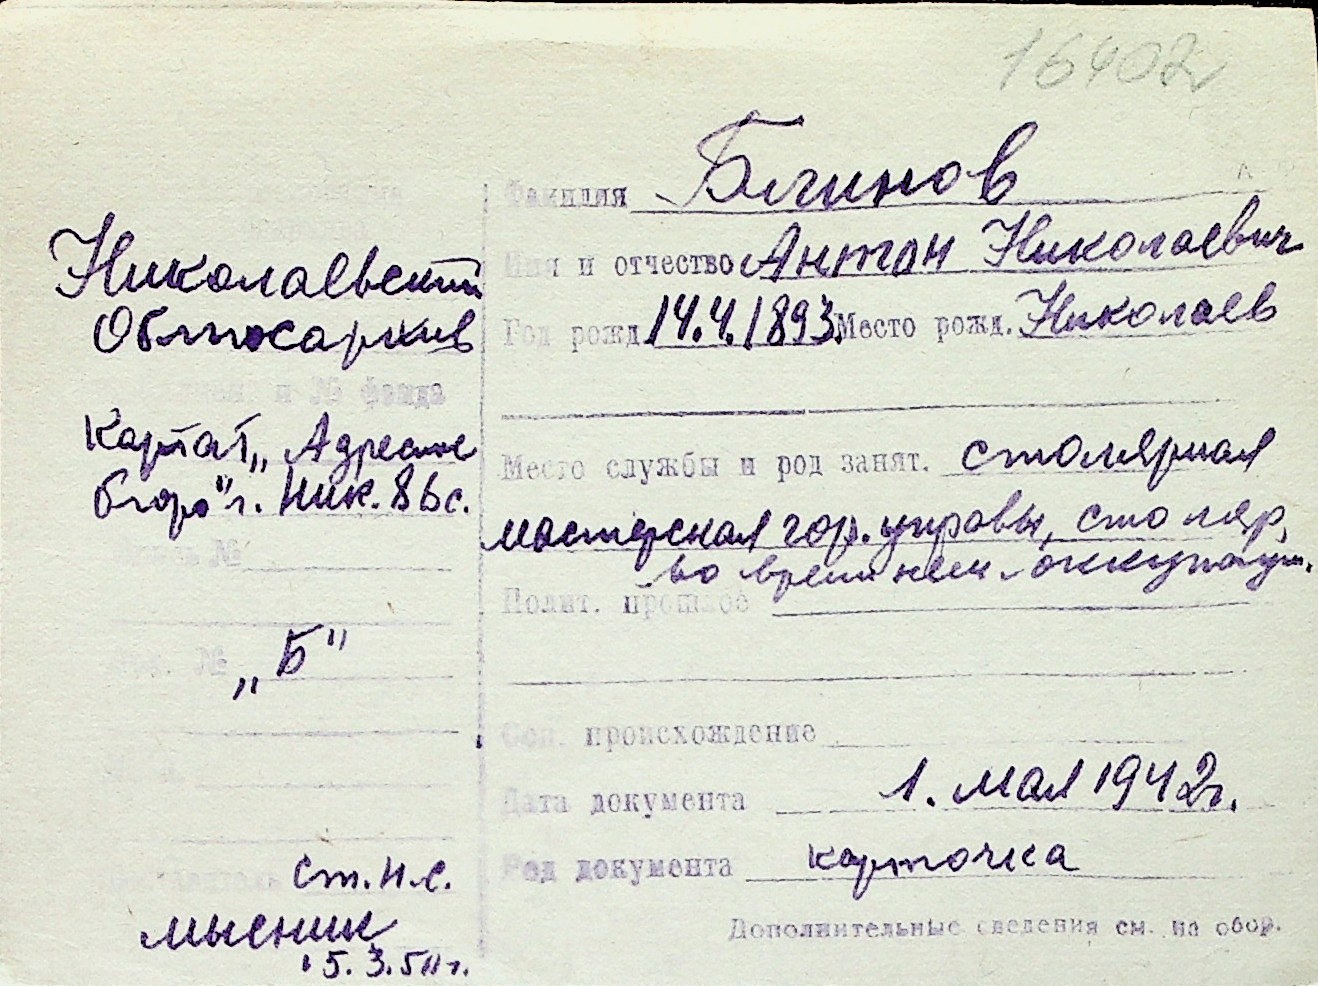 16402
Николаевский
Облгосархив
и № фонда
Картат, „Адресное
бюро" г. Ник. 86с.
№
„Б"
№
ст. н.с.
Мысник
15.3.50 г.
Фамилия Блинов
Имя и отчество Антон Николаевич
Год рожд. 14.4.1893. Место рожд. Николаев
Место службы и род занят. столярная
мастерская гор. управы, столяр,
во время нем. оккупации.
Полит. прошлое
Соц. происхождение
Дата документа 1. мая 1942 г.
Род документа карточка
Дополнительные сведения см. на обор.